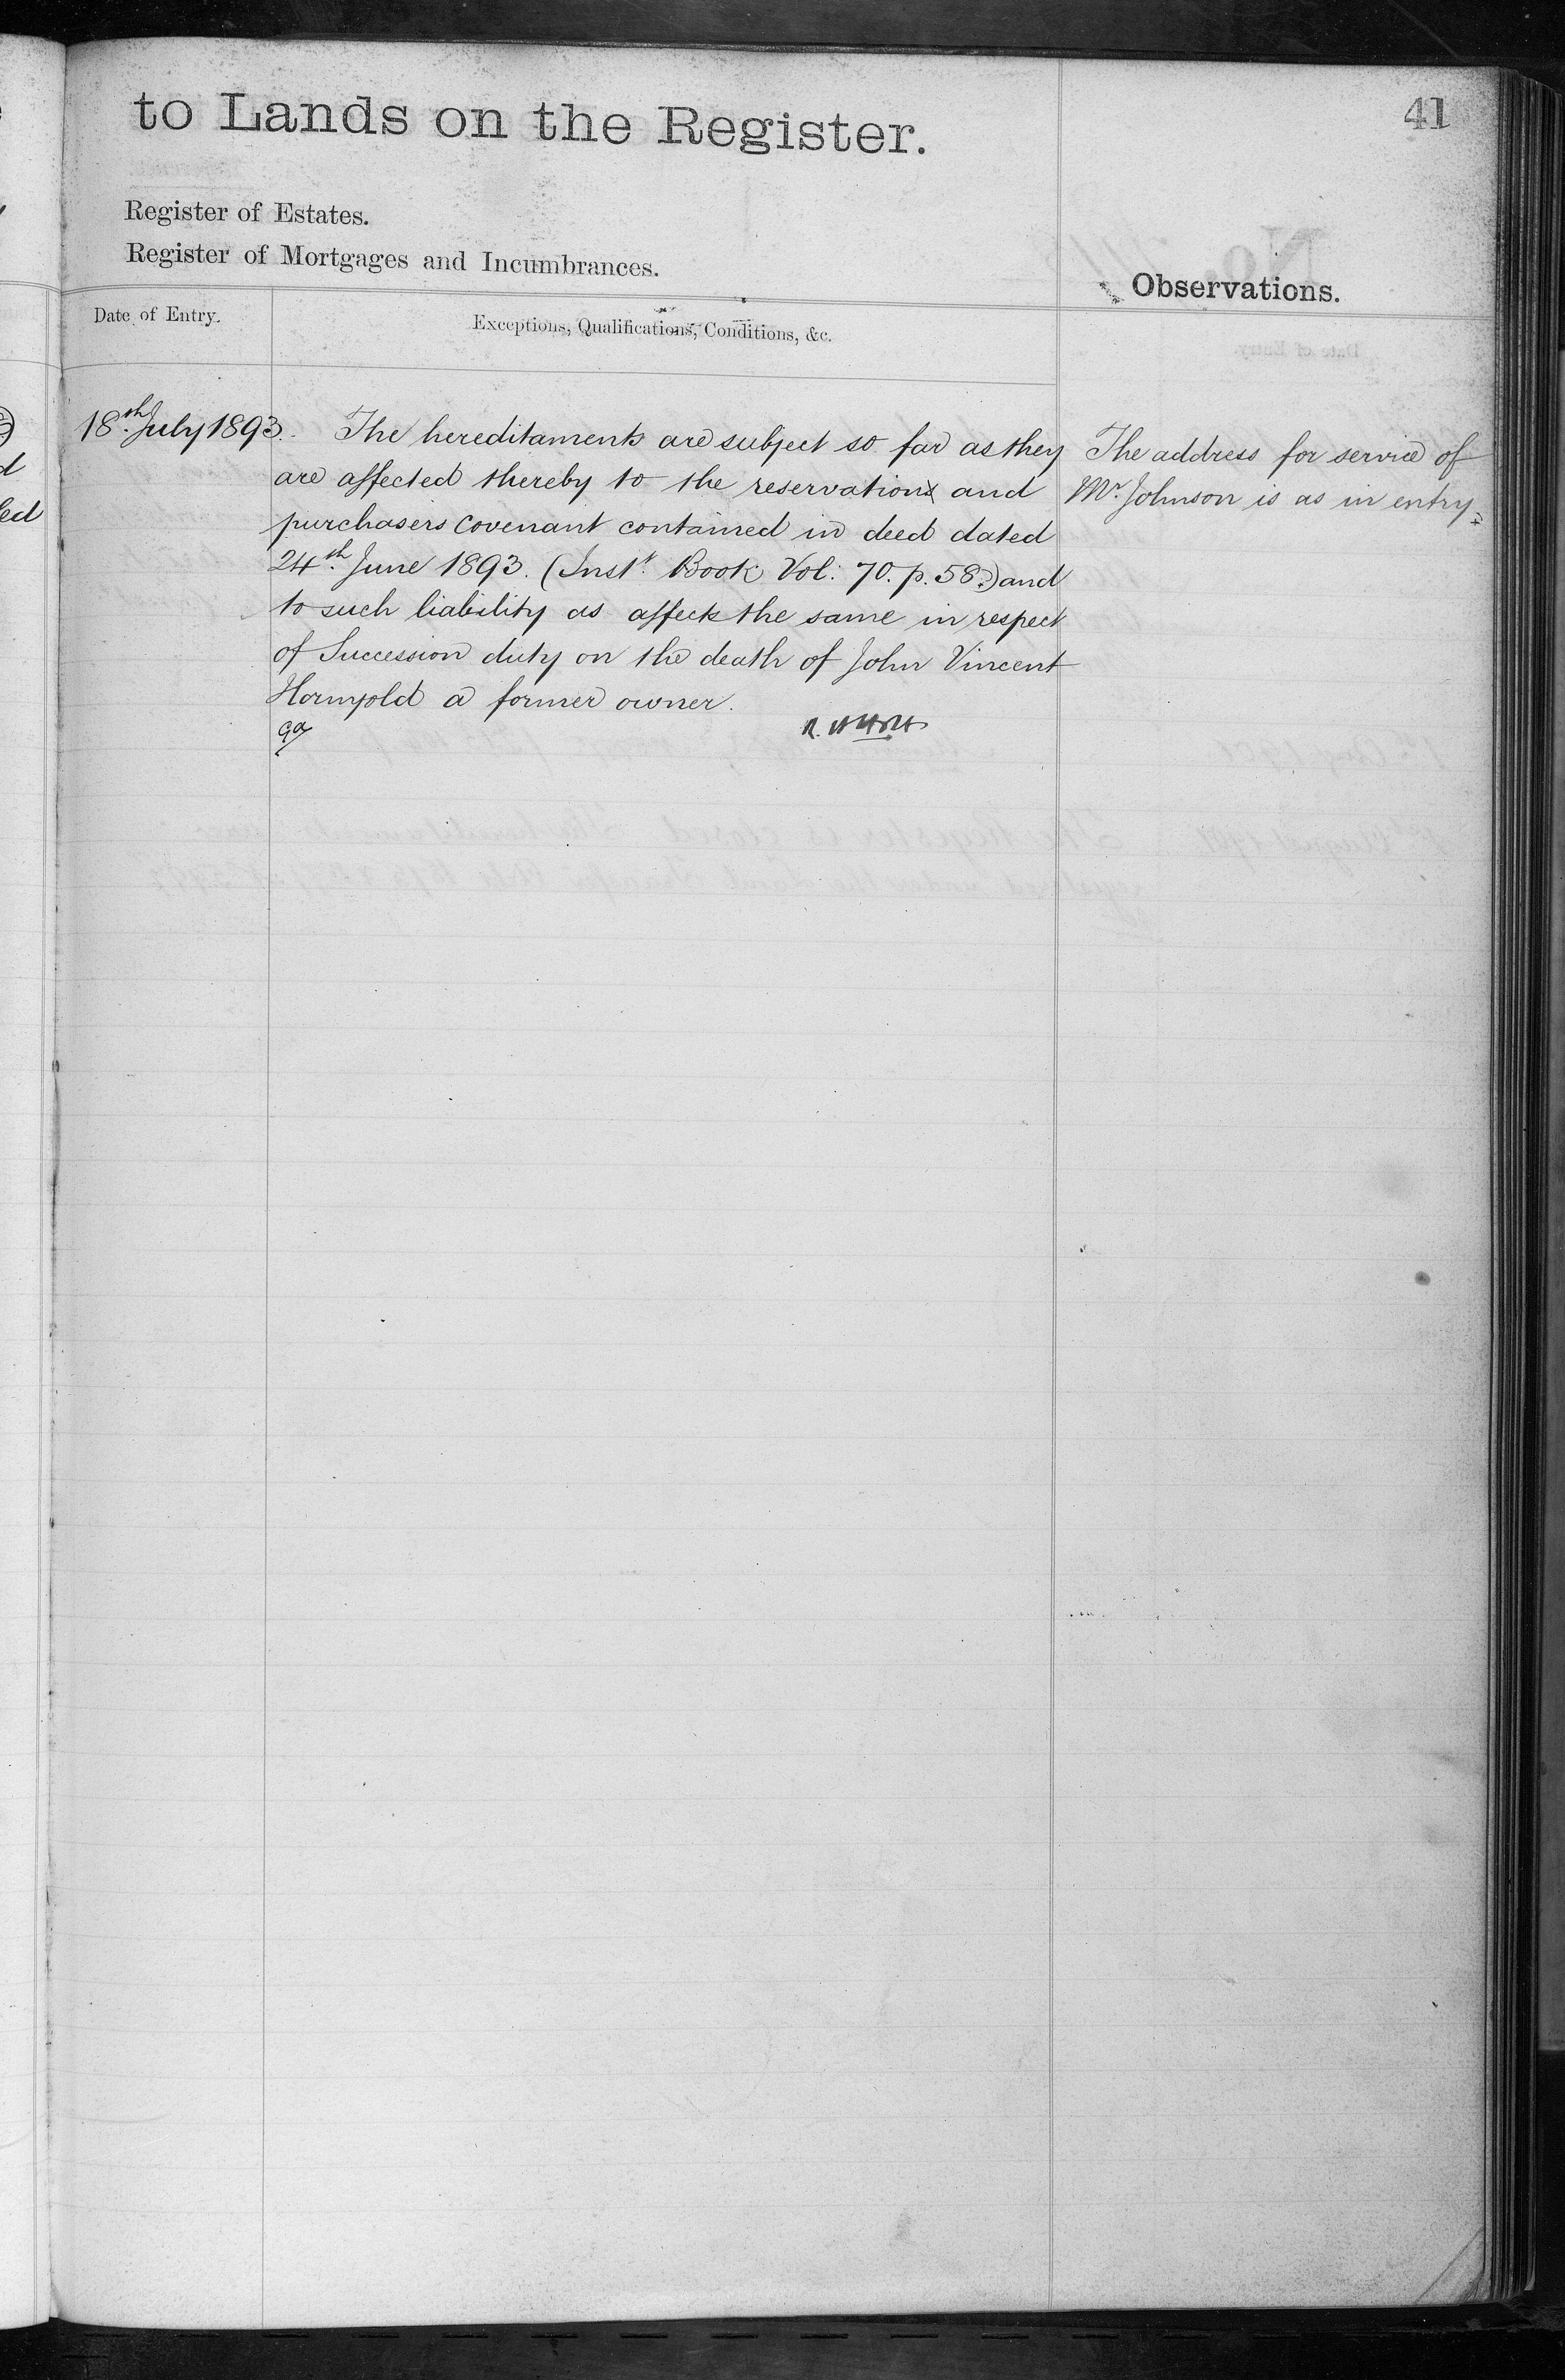 to Lands on the Register.
41
Register of Estates.
Register of Mortgages and Incumbrances.
Observations.
Date of Entry.
Exceptions, Qualifications, Conditions, &c.
18th July 1893.
The hereditaments are subject so far as they
are affected thereby to the reservation and
purchasers covenant contained in deed dated
24th June 1893. (Inst. Book Vol: 70. p. 58.) and
to such liability as affects the same in respect
of Succession duty on the death of John Vincent
Hornyold a former owner.
The address for service of
Mr. Johnson is as in entry.